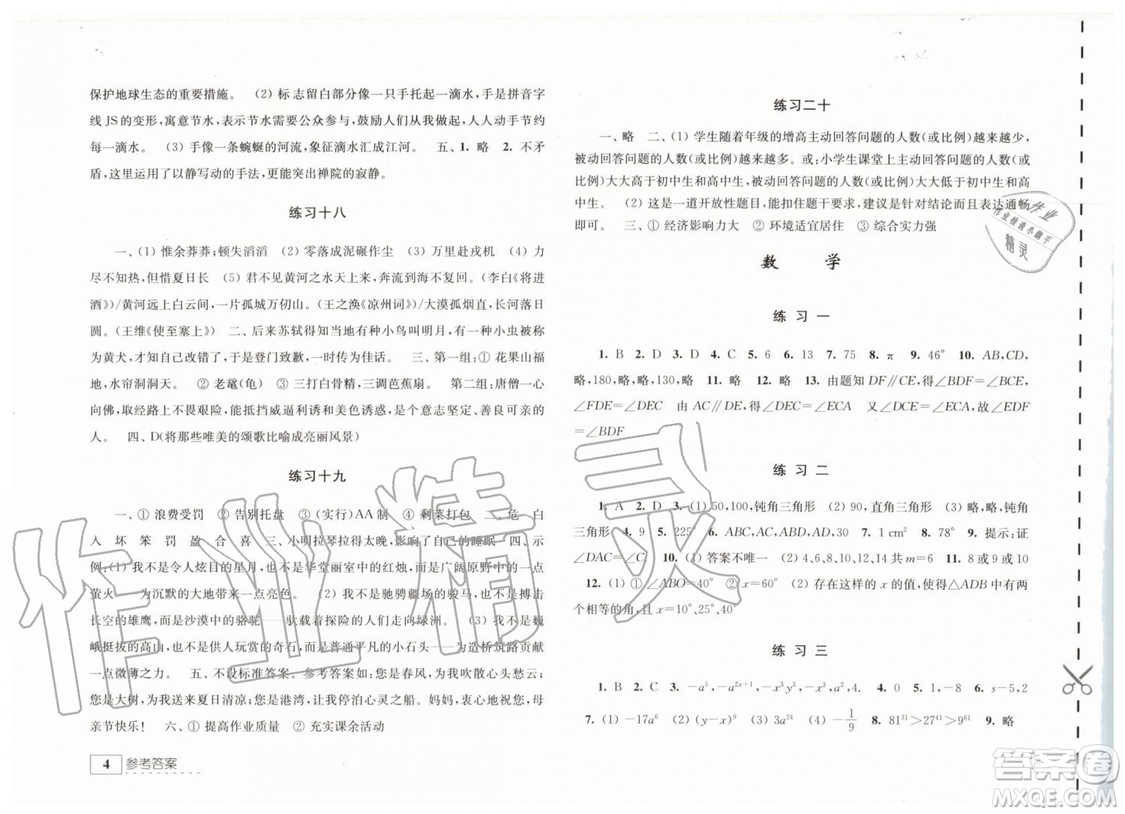 保护地球生态的重要措施。 (2) 标志留白部分像一只手托起一滴水,手是拼音字
线 JS 的变形,寓意节水,表示节水需要公众参与,保护水资源,人人动手,节约每
一滴水。 (3) 手像一条蜿蜒的河流,象征滴水汇成江河。 五、1. 略 2. 不矛
盾,这里运用了以静写动的手法,更能突出禅院的寂静。
练习十八
一、(1) 惟余莽莽;顿失滔滔 (2) 零落成泥碾作尘 (3) 万里赴戎机 (4) 力
尽不知热,但惜夏日长 (5) 君不见黄河之水天上来,奔流到海不复回。(李白《将进
酒》)/黄河远上白云间,一片孤城万仞山。(王之涣《凉州词》)/大漠孤烟直,长河落日
圆。(王维《使至塞上》) 二、后来苏轼得知当地有种小鸟叫明月,有一种小虫被称
为黄犬,才知自己改错了,于是登门致歉,一时传为佳话。 三、第一组:① 花果山福
地,水帘洞洞天。 ② 老鼋(龟) ③ 三打白骨精,三调芭蕉扇。 第二组:唐僧一心
向佛,取经路上不畏艰险,能抵挡威逼利诱和美色诱惑,是个意志坚定、善良可敬的
人。 四、D(将那些唯美的颂歌比喻成亮丽风景)
练习十九
一、① 浪费受罚 ② 告别托盘 ③ (实行)AA 制 ④ 剩菜打包 二、危 白
人 坏 笨 罚 盈 合 喜 三、小明拉琴拉得太晚,影响了自己的睡眠 四、示
例:(1) 我不是令人炫目的星月,也不是华堂丽室中的红烛,而是广阔原野中的一点
萤火——为沉默的大地带来一点亮色。 (2) 我不是驰骋疆场的骏马,也不是搏击
长空的雄鹰,而是沙漠中的骆驼——驮载着探险的人们奔向绿洲。 (3) 我不是巍
峨挺拔的高山,也不是供人玩赏的奇石,而是普通平凡的小石子——为铺路筑桥贡献
一点微薄之力。 五、不设标准答案。答案示例:您是春风,为我吹散心头愁云;
您是大树,为我送来夏日清凉;您是港湾,让我停泊心灵之船。妈妈,有您真好,母
亲节快乐! 六、① 提高作业质量 ② 充实课余活动
4 参考答案
练习二十
一、略 二、(1) 学生随着年级的增高主动回答问题的人数(或比例)越来越少,
被动回答问题的人数(或比例)越来越多。或:小学生课堂上主动回答问题的人数(或
比例)大大高于初中生和高中生,被动回答问题的人数(或比例)大大低于初中生和高
中生。 (2) 这是一道开放性题目,能扣住题干要求,建议是针对结论而且表达通畅
即可。 三、① 经济影响力大 ② 环境适宜居住 ③ 综合实力强
数 学
练 习 一
1. B 2. D 3. D 4. C 5. 6 6. 13 7. 75 8. π 9. 46° 10. AB,CD,
略,180,略,130,略,130,略 11. 略 12. 略 13. 略 14. 由题知 DF∥CE,得∠BDF=∠BCE,
∠FDE=∠DEC 由 AC∥DE,得∠DEC=∠ECA 又∠DCE=∠ECA,故∠EDF
=∠BDF
练 习 二
1. A 2. D 3. (1) 50,100,钝角三角形 (2) 90,直角三角形 (3) 略,略,钝角
三角形 4. 9 5. 225° 6. ABC,AC,ABD,AD,30 7. 1 cm² 8. D 9. 提示:证
∠DAC=∠C 10. (1) 答案不唯一 (2) 4、6、8、10、12、14 共 m=6 11. 8 或 9 或 10
12. (1) ① ∠ABO=40° ② x=60° (2) 存在这样的 x 的值,使得△ADB 中有两
个相等的角,且 x=10°、25°、40°
练 习 三
1. B 2. C 3. −a⁵,−a²ˣ⁺¹,−x³y³,−x⁴ 4. 0 5. −8 6. s−5,2
7. (1) −17a⁶ (2) (x−y)⁹ (3) 3a²⁴ (4) −1/9 8. 81³¹>27⁴¹>9⁶¹ 9. 略
作业精灵
作业
作业检查小助手
精灵
答案圈
MXQE.COM